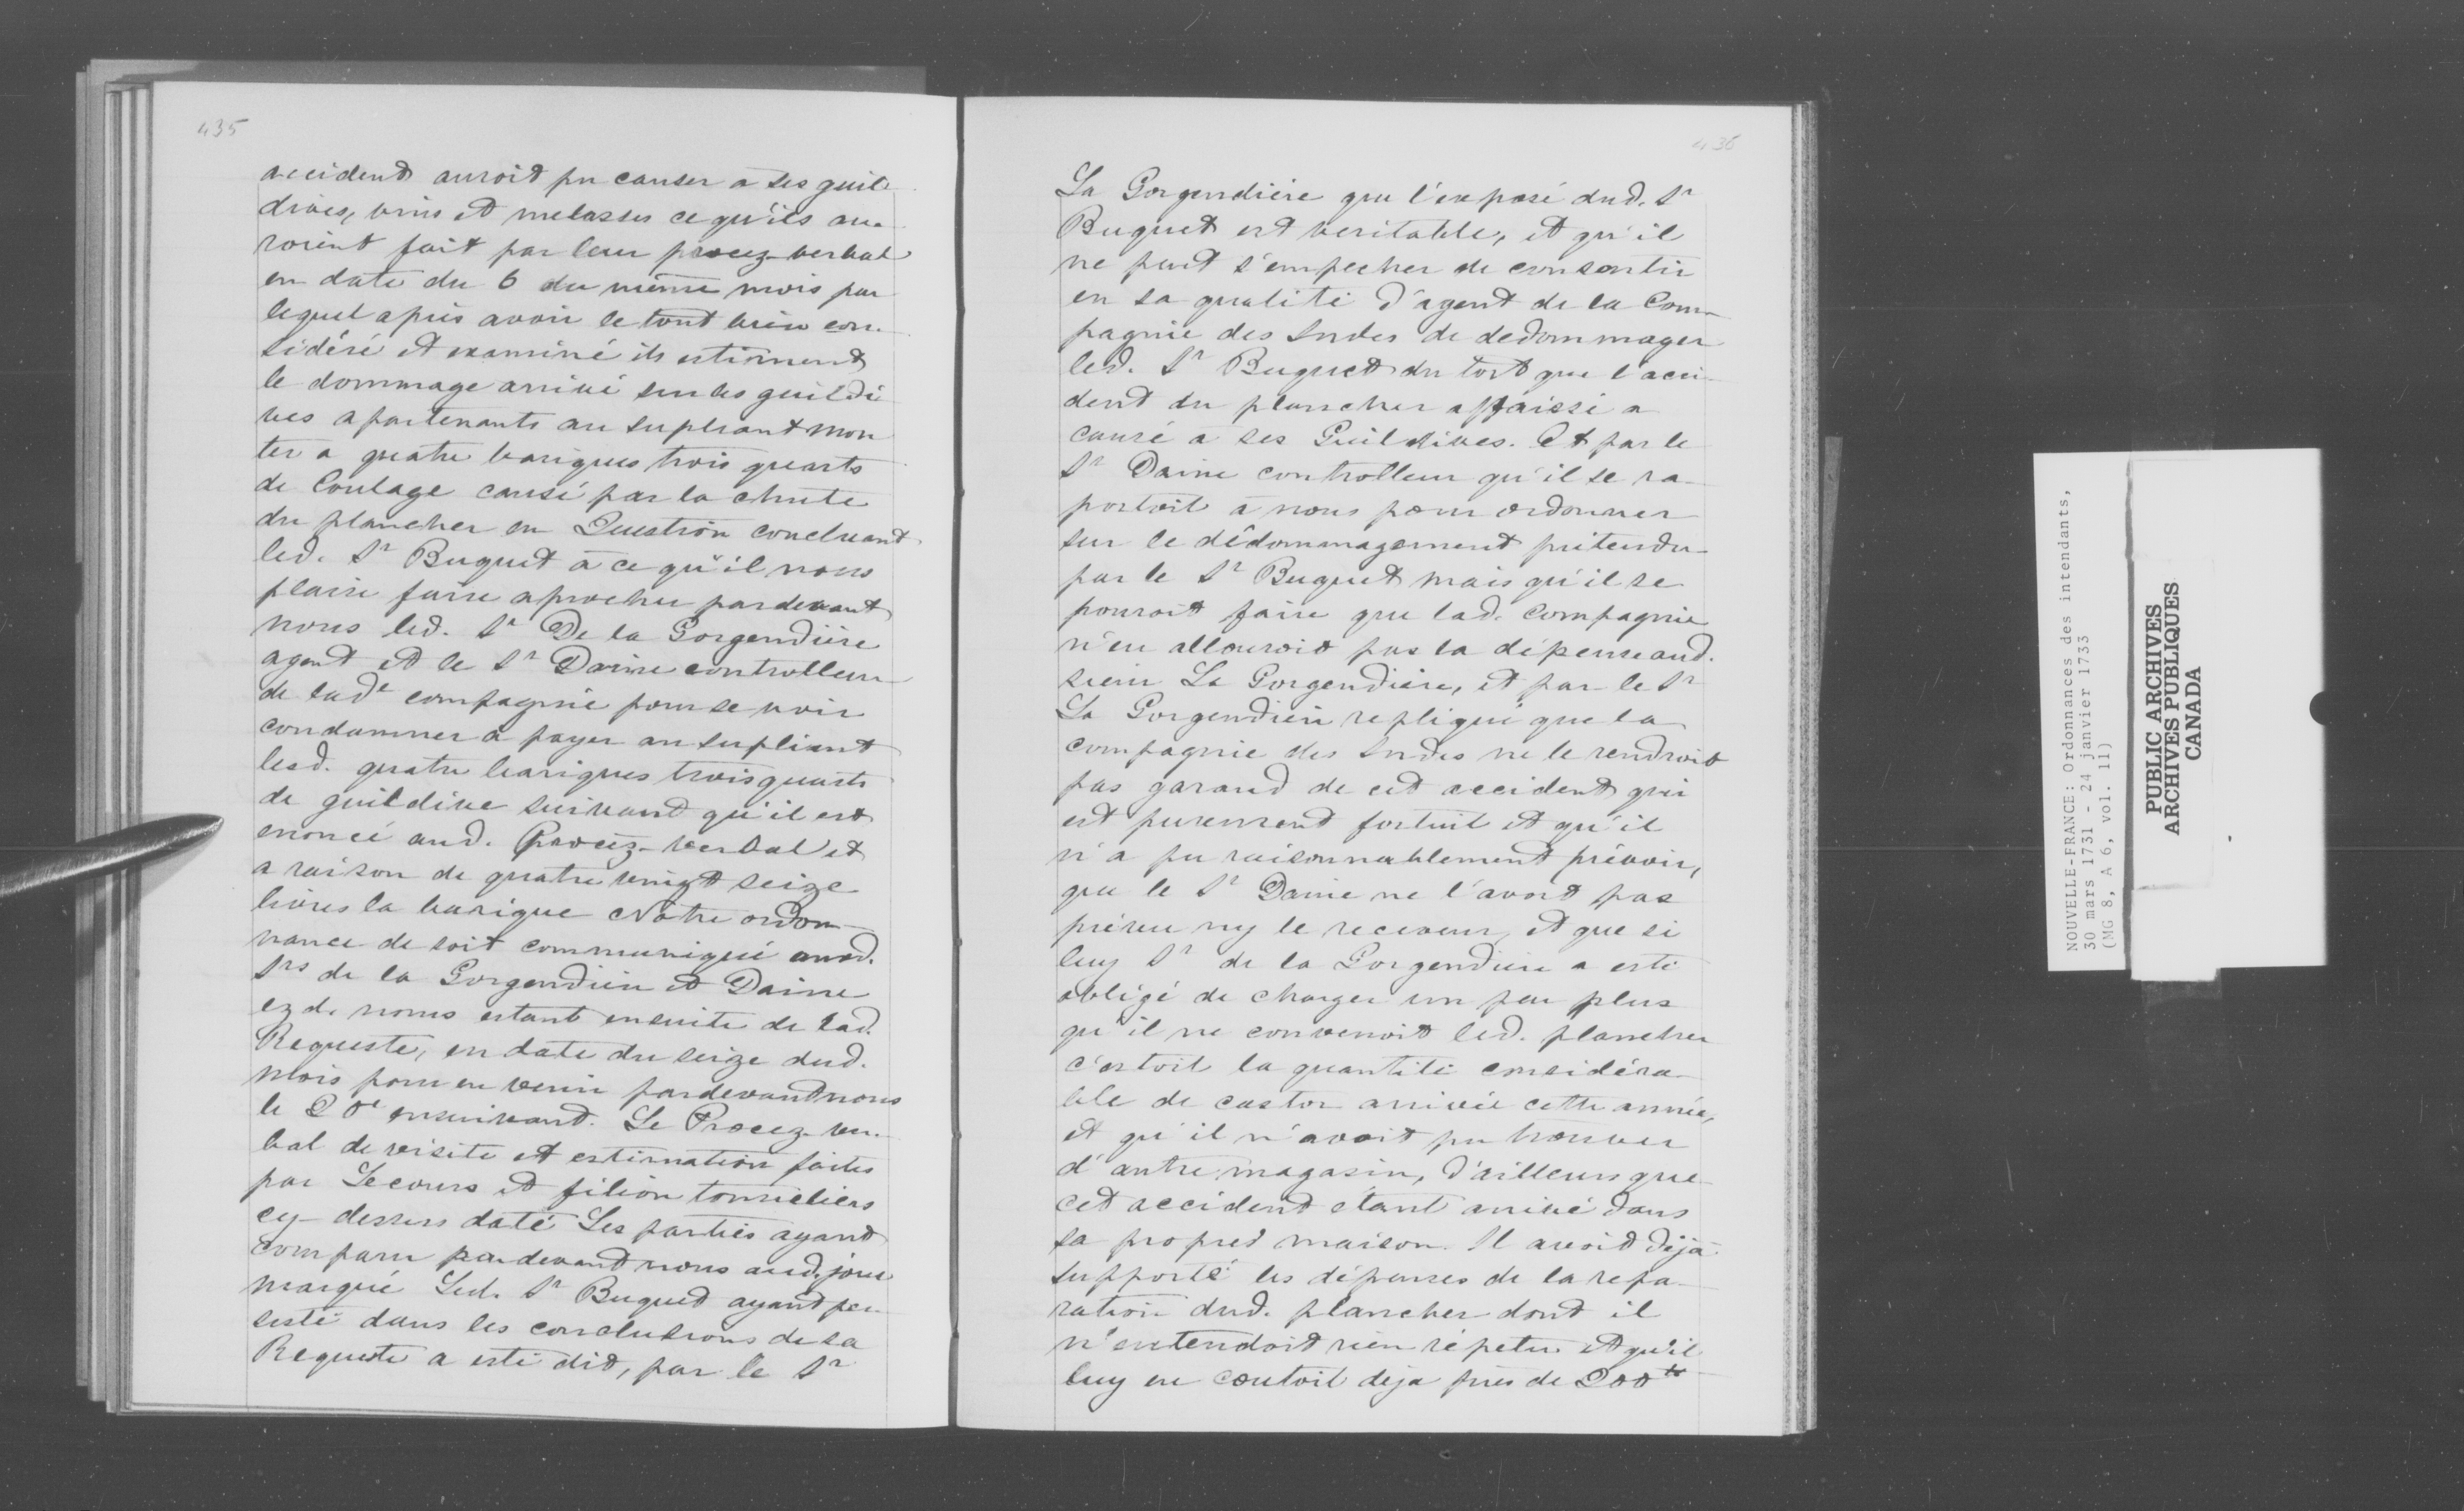 435
accident auroit pu causer a ses guil-
dives, vins et melasses ce qu'ils au-
roient fait par leur procez-verbal
en date du 6 du même mois par
lequel après avoir le tout bien con-
sidéré et examiné ils estiment
le dommage arrivé sur les guildi
ves apartenants au supliant mon
ter a quatre bariques trois quarts
de Coulage causé par la chute
du plancher en Question concluant
led. Sr Buquet à ce qu'il nous
plaise faire aprocher pardevant
nous led. Sr De la Gorgendière
agent et le Sr Daine controlleur
de lade compagnie pour se voir
condamner a payer au supliant
lesd. quatre bariques trois quarts
de guildive suivant qu'il est
enoncé aud. Procez-verbal et
a raison de quatre vingt seize
livres la barique Notre ordon-
nance de soit communiqué auxd.
Srs de la Gorgendière et Daine
ezd. noms estant ensuite de lad.
Requeste, en date du seize dud.
mois pour en venir pardevant nous
le 20e ensuivant. Le Procez ver-
bal de visite et estimation faites
par Lecours et filion tonneliers
cy-dessus daté Les parties ayant
comparu pardevant nous aud. jour
marqué Led. Sr Buquet ayant per-
sisté dans les conclusions de sa
Requeste a esté dit, par le Sr
436
La Gorgendière que l'exposé dud. Sr
Buquet est veritable, et qu'il
ne peut s'empecher de consentir
en sa qualité d'agent de la Com-
pagnie des Indes de dedommager
led. Sr Buquet du tort que l'acci-
dent du plancher affaissé a
causé a ses Guildives. Et par le
Sr Daine controlleur qu'il se ra-
portoit à nous pour ordonner
sur le dédommagement prétendu
par le Sr Buquet mais qu'il se
pouroit faire que lad. compagnie
n'en alloueroit pas la dépense aud.
sieur La Gorgendière, et par le Sr
La Gorgendière repliqué que la
compagnie des Indes ne le rendroit
pas garand de cet accident qui
est purement fortuit et qu'il
n'a pu raisonnablement prévoir,
que le Sr Daine ne l'avoit pas
prévu ny le receveur, et que si
luy Sr de la Gorgendière a esté
obligé de charger un peu plus
qu'il ne convenoit led. plancher
c'estoit la quantité considéra-
ble de castor arrivée cette année,
et qu'il n'avoit pu trouver
d'autre magasin, d'ailleurs que
cet accident étant arrivé dans
sa propre maison. Il avoit déjà
supporté les dépenses de la répa-
ration dud. plancher dont il
n'entendoit rien répeter et qu'il
luy en coutoit deja près de 200 tt
NOUVELLE-FRANCE: Ordonnances des intendants,
30 mars 1731 - 24 janvier 1733
(MG 8, A 6, vol. 11)
PUBLIC ARCHIVES
ARCHIVES PUBLIQUES
CANADA